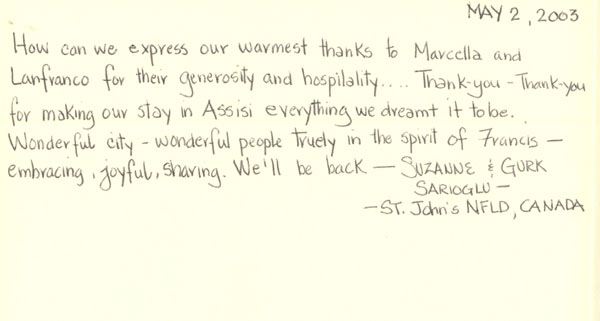 MAY 2, 2003
How can we express our warmest thanks to Marcella and
Lanfranco for their generosity and hospilality.... Thank-you - Thank-you
for making our stay in Assisi everything we dreamt it to be.
Wonderful city - wonderful people truely in the spirit of Francis —
embracing, joyful, sharing. We'll be back — SUZANNE & GURK
SARIOGLU —
— ST. John's NFLD, CANADA